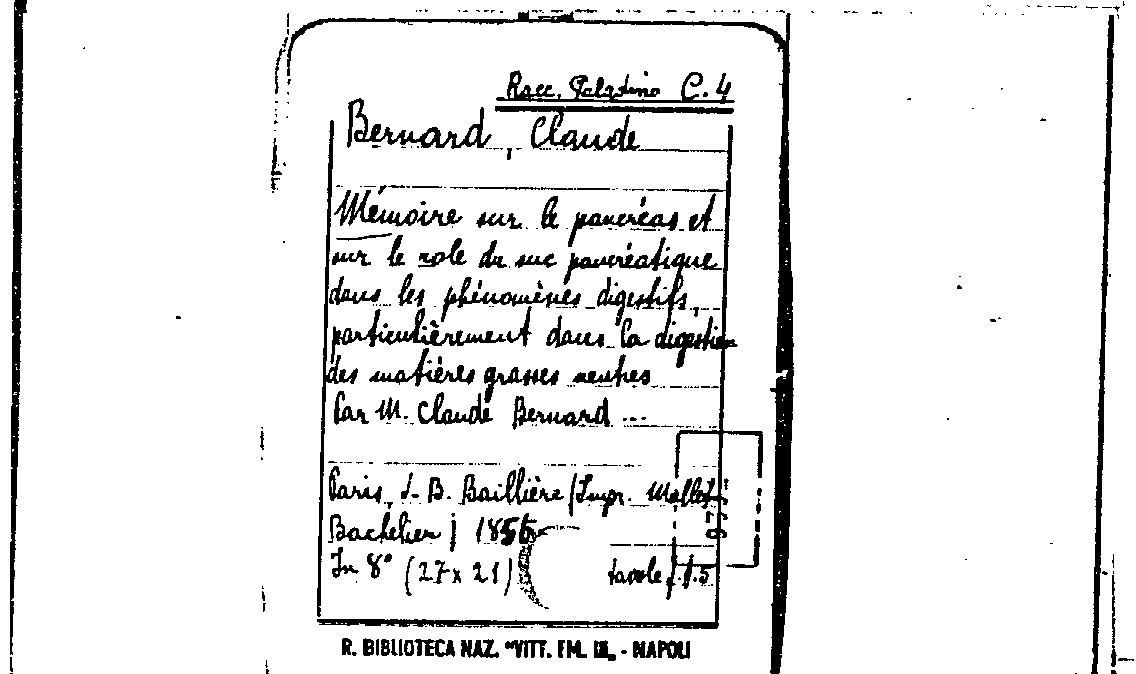 Racc. Palatina C. 4
Bernard, Claude
Mémoire sur le pancréas et
sur le role du suc pancréatique
dans les phénomènes digestifs,
particulièrement dans la digestion
des matières grasses neutres
Par M. Claude Bernard ...
Paris, J. B. Baillière (Impr. Mallet-
Bachelier) 1856
In 8° (27 x 21) tavole
R. BIBLIOTECA NAZ. "VITT. EM. III„ - NAPOLI